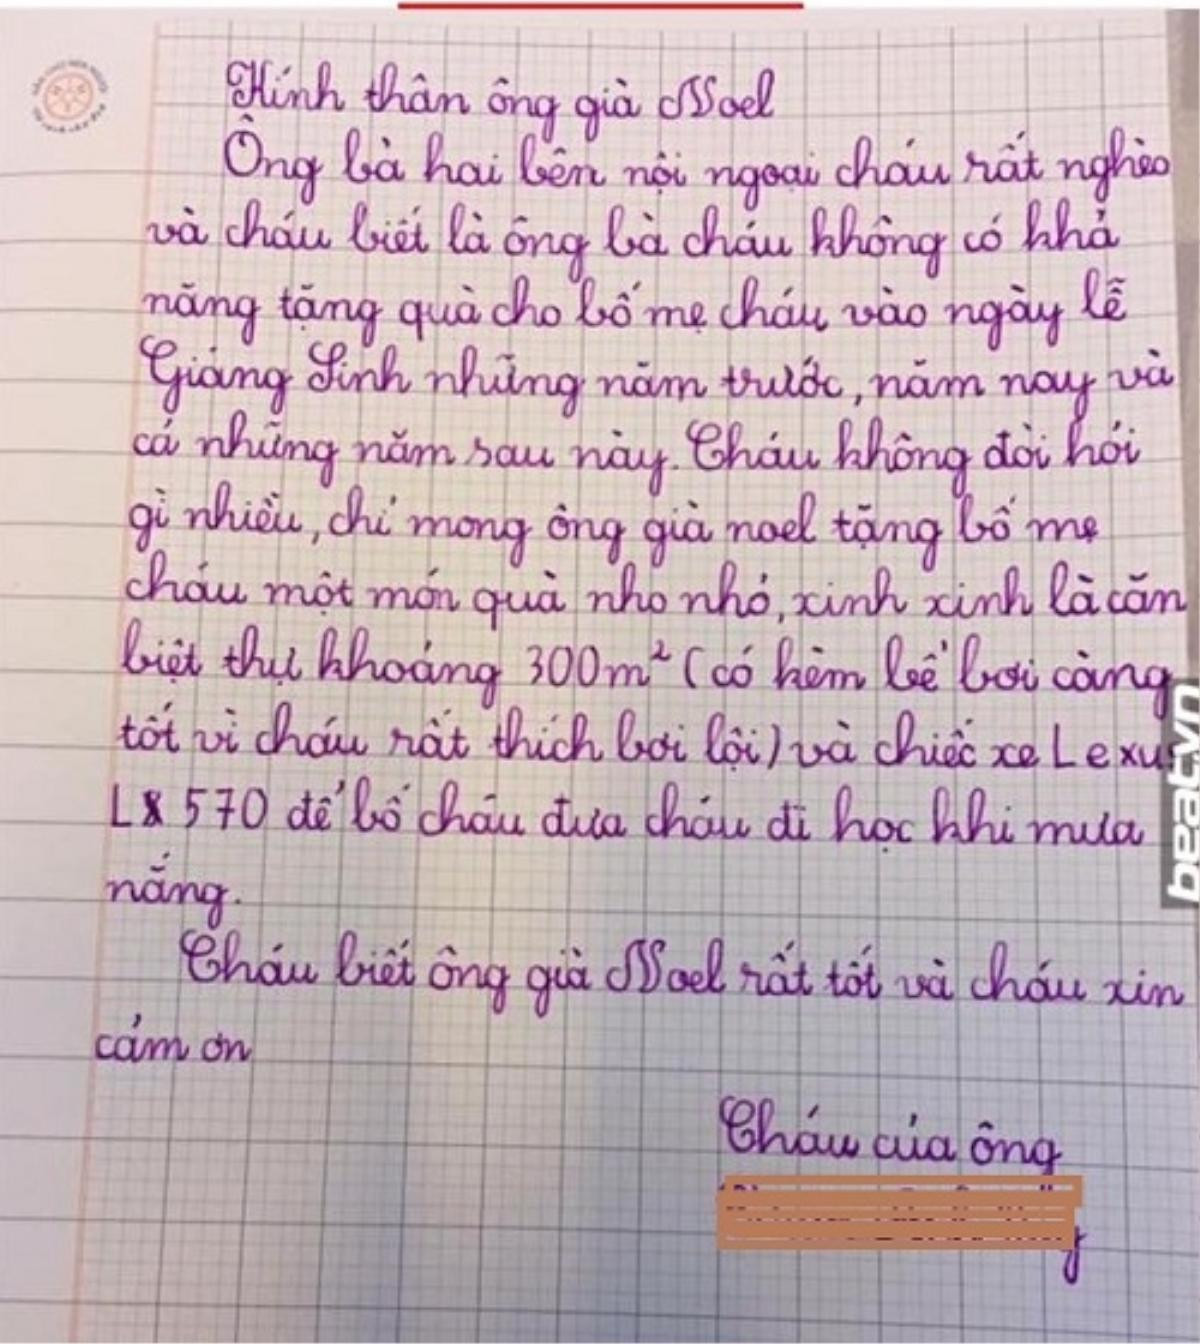 Kính thân ông già Noel
Ông bà hai bên nội ngoại cháu rất nghèo
và cháu biết là ông bà cháu không có khả
năng tặng quà cho bố mẹ cháu vào ngày lễ
Giáng Sinh những năm trước, năm nay và
cả những năm sau này. Cháu không đòi hỏi
gì nhiều, chỉ mong ông già noel tặng bố mẹ
cháu một món quà nho nhỏ, xinh xinh là căn
biệt thự khoảng 300m² (có kèm bể bơi càng
tốt vì cháu rất thích bơi lội) và chiếc xe Lexus
LX 570 để bố cháu đưa cháu đi học khi mưa
nắng.
Cháu biết ông già Noel rất tốt và cháu xin
cảm ơn
Cháu của ông
beat.vn